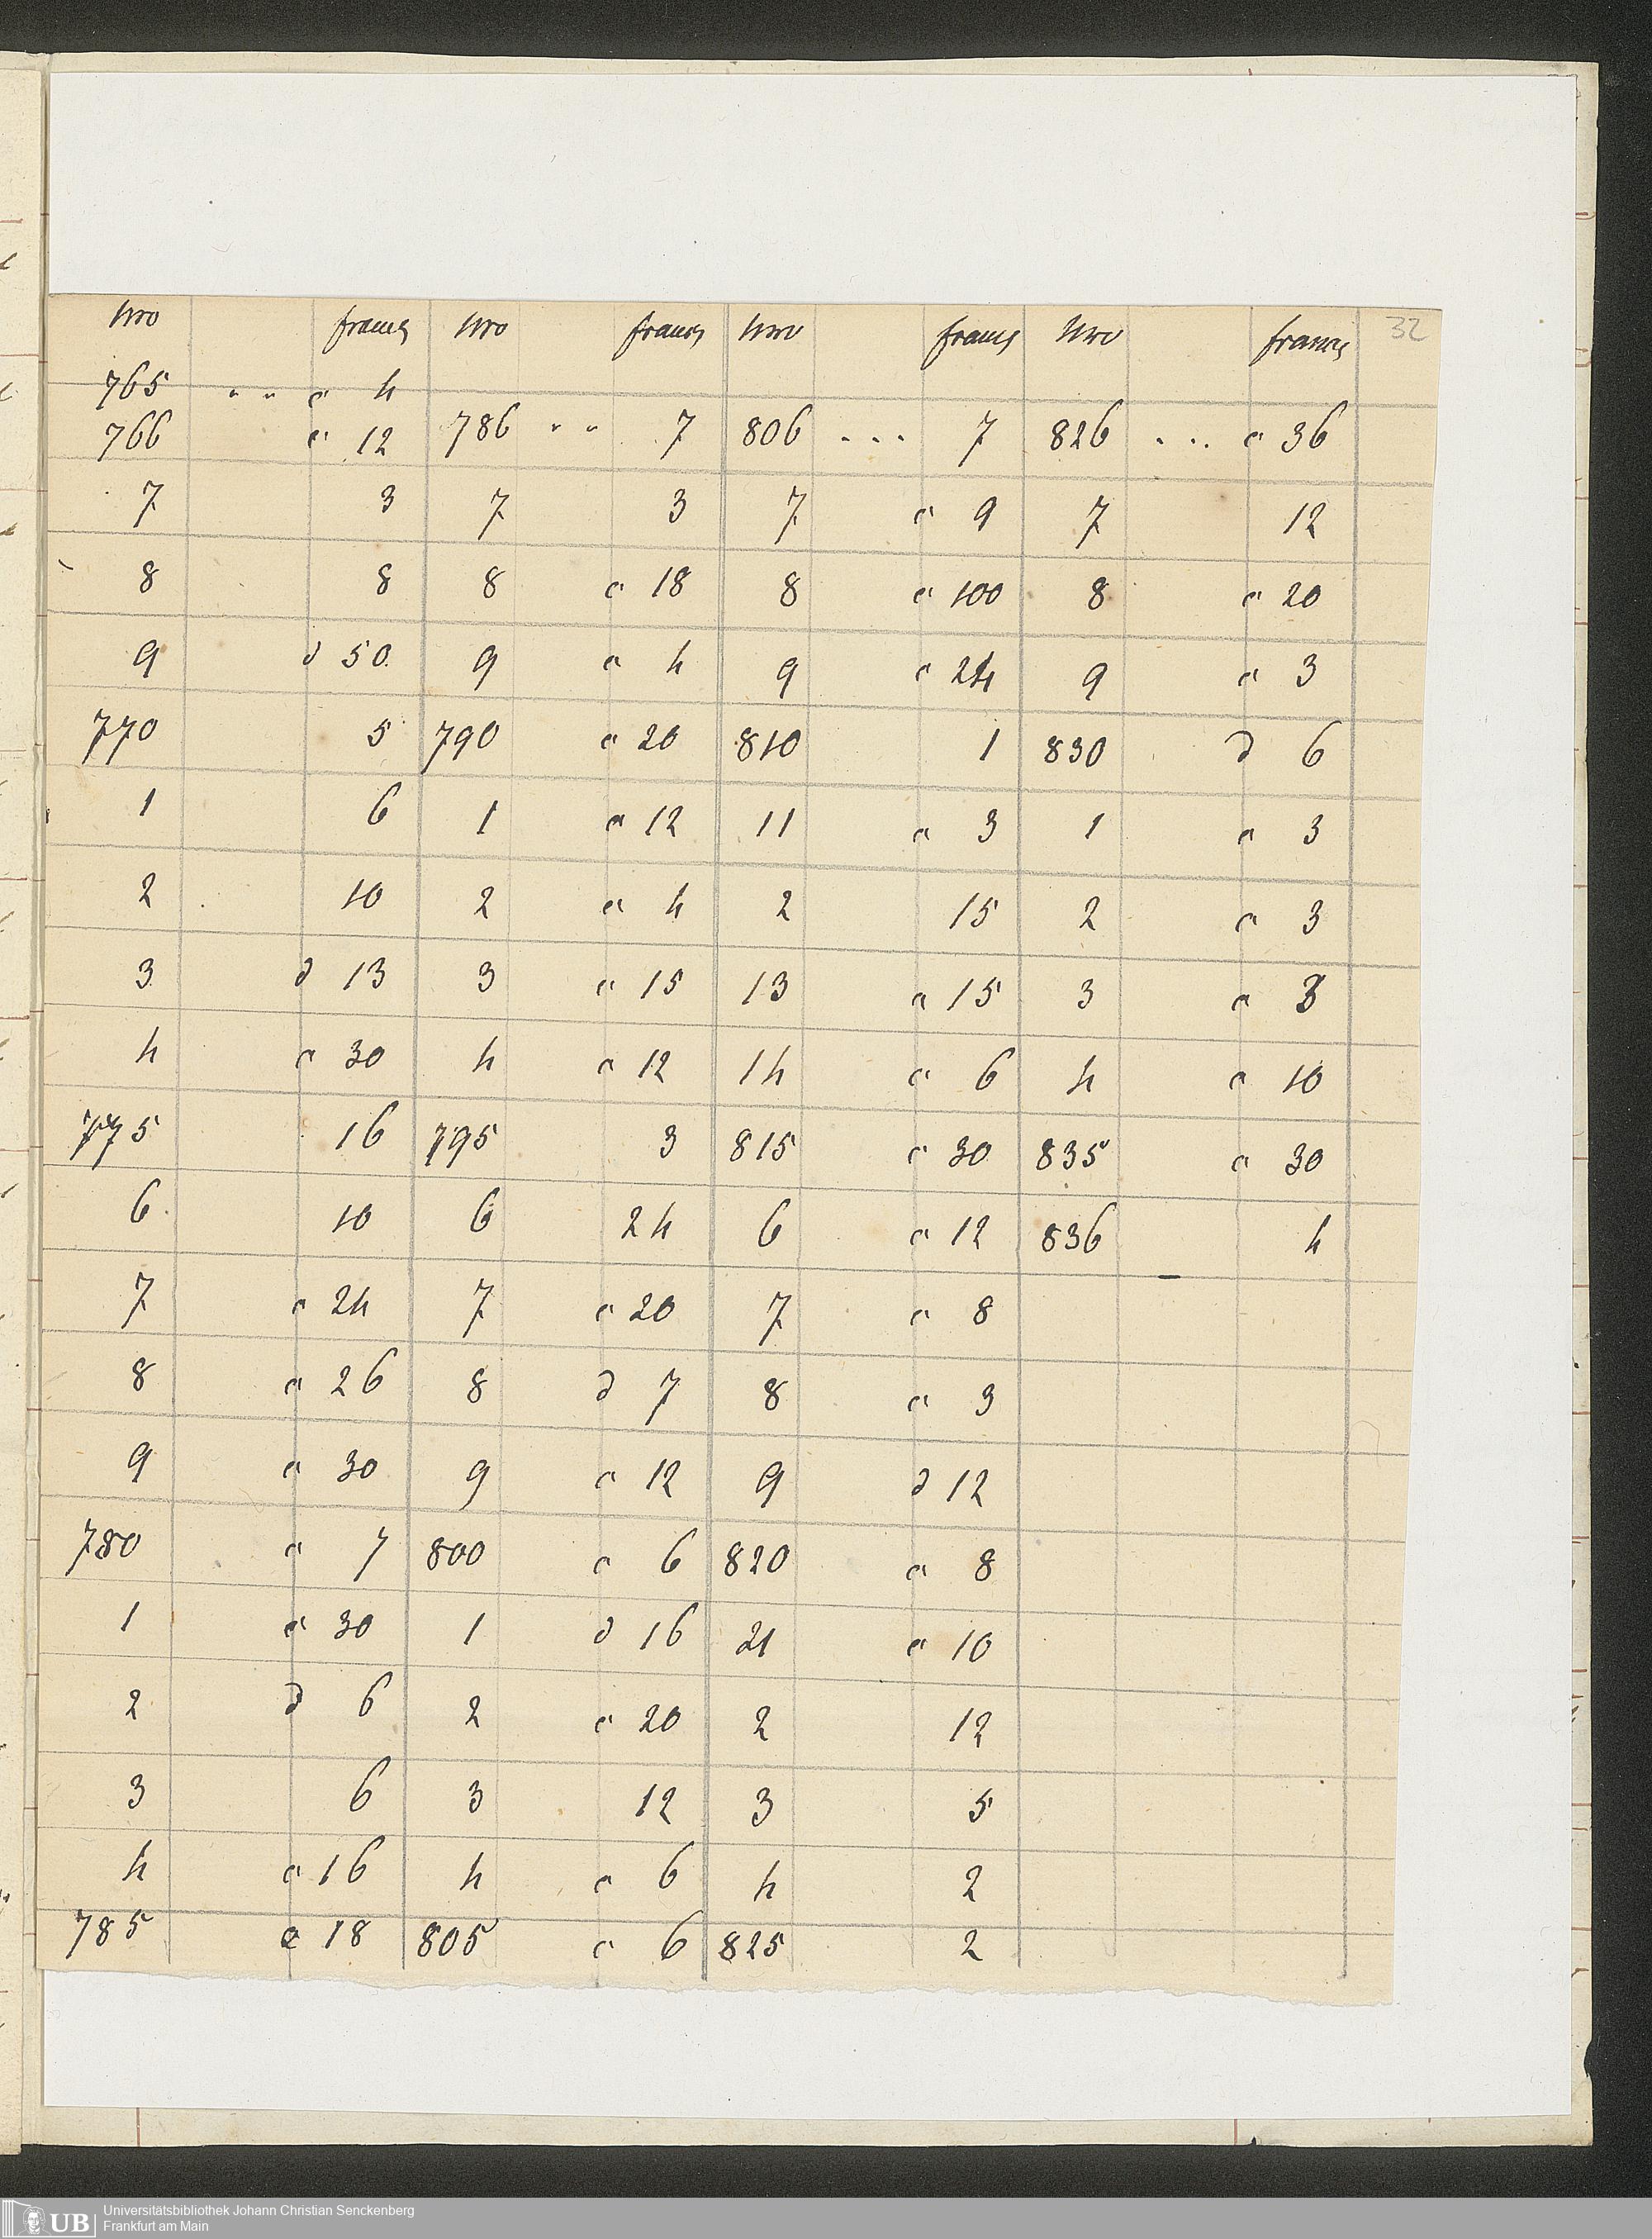 32
Nro francs Nro francs Nro francs Nro francs
765 . . a 4
766 a 12 786 . . 7 806 . . . 7 826 . . . a 36
7 3 7 3 7 a 9 7 12
8 8 8 a 18 8 a 100 8 a 20
9 d 50 9 a 4 9 a 24 9 a 3
770 5 790 a 20 810 1 830 d 6
1 6 1 a 12 11 a 3 1 a 3
2 10 2 a 4 2 15 2 a 3
3 d 13 3 a 15 13 a 15 3 a 3
4 a 30 4 a 12 14 a 6 4 a 10
775 16 795 3 815 a 30 835 a 30
6 10 6 24 6 a 12 836 4
7 a 24 7 a 20 7 a 8
8 a 26 8 d 7 8 a 3
9 a 30 9 a 12 9 d 12
780 a 7 800 a 6 820 a 8
1 a 30 1 d 16 21 a 10
2 d 6 2 a 20 2 12
3 6 3 12 3 5
4 a 16 4 a 6 4 2
785 a 18 805 a 6 825 2
UB Universitätsbibliothek Johann Christian Senckenberg
Frankfurt am Main